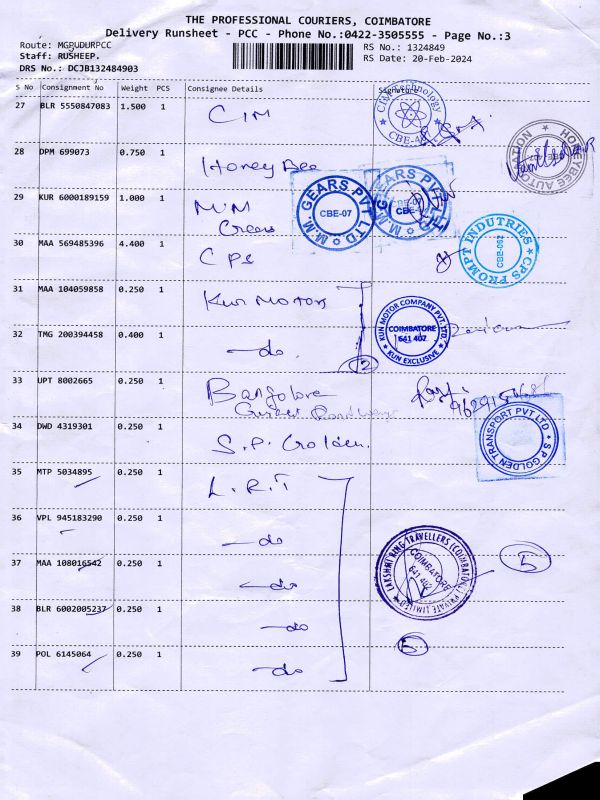 THE PROFESSIONAL COURIERS, COIMBATORE
Delivery Runsheet - PCC - Phone No.:0422-3505555 - Page No.:3
Route: MGPUDURPCC
RS No.: 1324849
Staff: RUSHEEP.
RS Date: 20-Feb-2024
DRS No.: DCJB132484903
S No Consignment No Weight PCS Consignee Details Signature
27 BLR 5550847083 1.500 1 CIM
28 DPM 699073 0.750 1 Honey Bee
29 KUR 6000189159 1.000 1 M.M Gears
30 MAA 569485396 4.400 1 CPS
31 MAA 104059858 0.250 1 Kun Motors
32 TMG 200394458 0.400 1 do. 2
33 UPT 8002665 0.250 1 Bangalore
34 DWD 4319301 0.250 1 S.P. Golden.
35 MTP 5034895 0.250 1 L.R.T
36 VPL 945183290 0.250 1 do
37 MAA 108016542 0.250 1 do
38 BLR 6002005237 0.250 1 do
39 POL 6145064 0.250 1 do
Technology
CBE-48
HONEYBEE AUTOMATION
M.M. GEARS PVT LTD
CBE-07
M.M. GEARS PVT LTD
CBE-07
CPS PROMPT INDUTRIES
CBE-062
KUN MOTOR COMPANY PVT. LTD.
COIMBATORE
641 402
KUN EXCLUSIVE
S P GOLDEN TRANSPORT PVT LTD
LAKSHMI RING TRAVELLERS (COIMBATORE) PRIVATE LIMITED
COIMBATORE
641 402
5
5